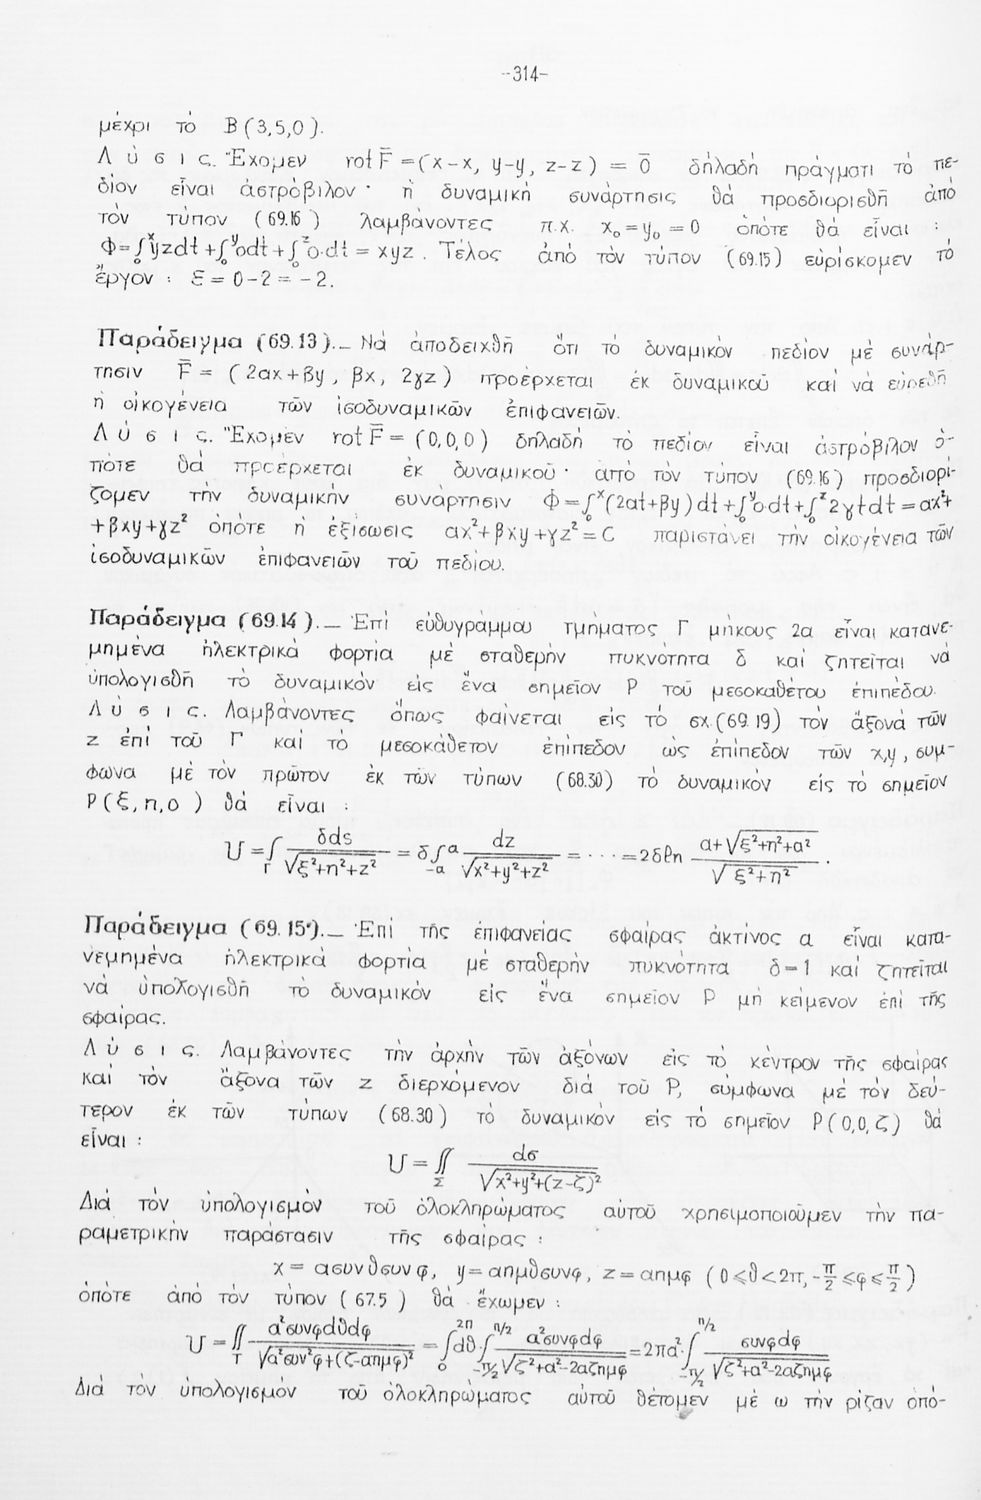 -314-
μέχρι τό B(3,5,0).
Λ ύ σ ι ς. Ἔχομεν rot F̄ =(x-x, y-y, z-z) = 0̄ δηλαδή πράγματι τό πε-
δίον εἶναι ἀστρόβιλον· ἡ δυναμική συνάρτησις θά προσδιορισθῆ ἀπό
τόν τύπον (69.16) λαμβάνοντες π.χ. x₀=y₀=0 ὁπότε θά εἶναι :
Φ=∫₀ˣyzdt+∫₀ʸ0dt+∫₀ᶻ0·dt = xyz . Τέλος ἀπό τόν τύπον (69.15) εὑρίσκομεν τό
ἔργον : ℰ = 0-2 = -2.
Παράδειγμα (69.13)._ Νά ἀποδειχθῆ ὅτι τό δυναμικόν πεδίον μέ συνάρ-
τησιν F̄ = (2αx+βy, βx, 2γz) προέρχεται ἐκ δυναμικοῦ καί νά εὑρεθῆ
ἡ οἰκογένεια τῶν ἰσοδυναμικῶν ἐπιφανειῶν.
Λ ύ σ ι ς. Ἔχομεν rot F̄ = (0,0,0) δηλαδή τό πεδίον εἶναι ἀστρόβιλον ὁ-
πότε θά προέρχεται ἐκ δυναμικοῦ· ἀπό τόν τύπον (69.16) προσδιορί-
ζομεν τήν δυναμικήν συνάρτησιν Φ=∫₀ˣ(2αt+βy)dt+∫₀ʸ0·dt+∫₀ᶻ2γtdt=αx²+
+βxy+γz² ὁπότε ἡ ἐξίσωσις αx²+βxy+γz²=C παριστάνει τήν οἰκογένεια τῶν
ἰσοδυναμικῶν ἐπιφανειῶν τοῦ πεδίου.
Παράδειγμα (69.14)._ Ἐπί εὐθυγράμμου τμήματος Γ μήκους 2α εἶναι κατανε-
μημένα ἠλεκτρικά φορτία μέ σταθερήν πυκνότητα δ καί ζητεῖται νά
ὑπολογισθῆ τό δυναμικόν εἰς ἕνα σημεῖον P τοῦ μεσοκαθέτου ἐπιπέδου.
Λ ύ σ ι ς. Λαμβάνοντες ὅπως φαίνεται εἰς τό σχ.(69.19) τόν ἄξονά τῶν
z ἐπί τοῦ Γ καί τό μεσοκάθετον ἐπίπεδον ὡς ἐπίπεδον τῶν x,y, συμ-
φωνα μέ τόν πρῶτον ἐκ τῶν τύπων (68.30) τό δυναμικόν εἰς τό σημεῖον
P(ξ,η,0) θά εἶναι :
U=∫_Γ δds/√(ξ²+η²+z²) = δ∫₋αᵅ dz/√(x²+y²+z²) = ··· =2δℓn (α+√(ξ²+η²+α²))/√(ξ²+η²) .
Παράδειγμα (69.15)._ Ἐπί τῆς ἐπιφανείας σφαίρας ἀκτίνος α εἶναι κατα-
νεμημένα ἠλεκτρικά φορτία μέ σταθερήν πυκνότητα δ=1 καί ζητεῖται
νά ὑπολογισθῆ τό δυναμικόν εἰς ἕνα σημεῖον P μή κείμενον ἐπί τῆς
σφαίρας.
Λ ύ σ ι ς. Λαμβάνοντες τήν ἀρχήν τῶν ἀξόνων εἰς τό κέντρον τῆς σφαίρας
καί τόν ἄξονα τῶν z διερχόμενον διά τοῦ P, σύμφωνα μέ τόν δεύ-
τερον ἐκ τῶν τύπων (68.30) τό δυναμικόν εἰς τό σημεῖον P(0,0,ζ) θά
εἶναι :
U=∬_Σ dσ/√(x²+y²+(z-ζ)²)
Διά τόν ὑπολογισμόν τοῦ ὁλοκληρώματος αὐτοῦ χρησιμοποιοῦμεν τήν πα-
ραμετρικήν παράστασιν τῆς σφαίρας :
x=ασυνθσυνφ, y=αημθσυνφ, z=αημφ (0≤θ<2π, -π/2≤φ≤π/2)
ὁπότε ἀπό τόν τύπον (67.5) θά ἔχωμεν :
U=∬_T α²συνφdθdφ/√(α²συν²φ+(ζ-αημφ)²) = ∫₀^2π dθ·∫_-π/2^π/2 α²συνφdφ/√(ζ²+α²-2αζημφ) =2πα²·∫_-π/2^π/2 συνφdφ/√(ζ²+α²-2αζημφ)
Διά τόν ὑπολογισμόν τοῦ ὁλοκληρώματος αὐτοῦ θέτομεν μέ ω τήν ρίζαν ὁπό-